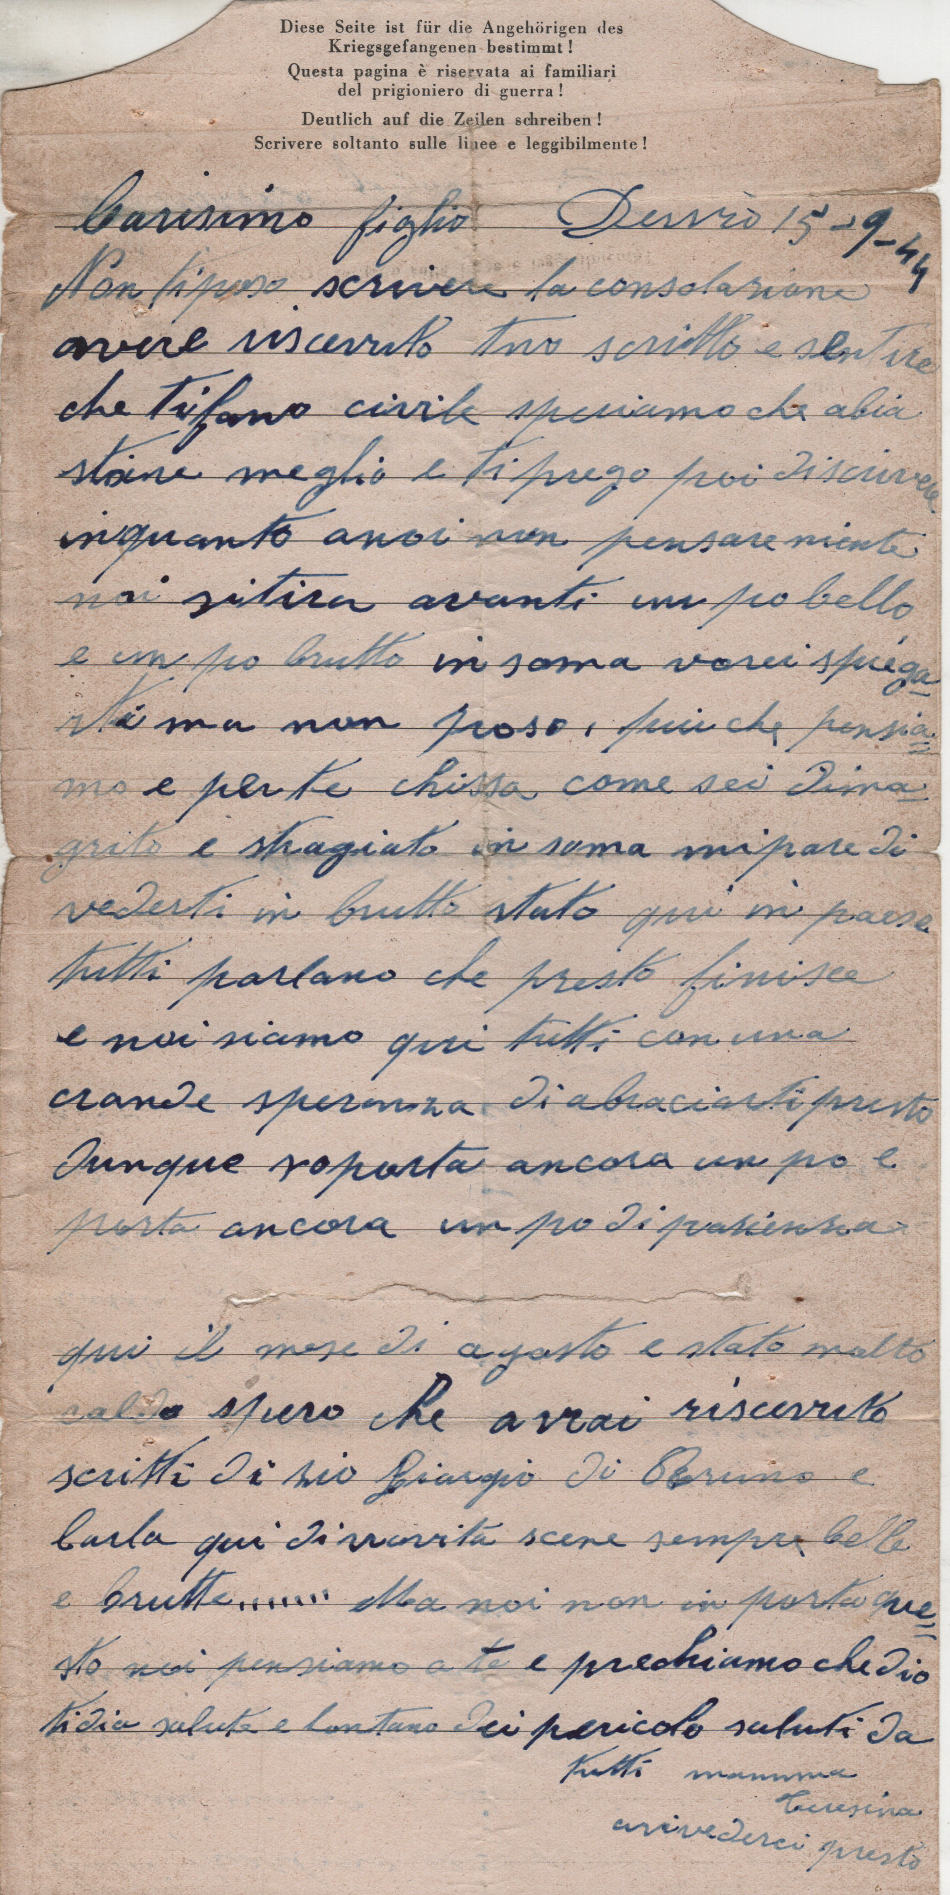 Diese Seite ist für die Angehörigen des
Kriegsgefangenen bestimmt!
Questa pagina è riservata ai familiari
del prigioniero di guerra!
Deutlich auf die Zeilen schreiben!
Scrivere soltanto sulle linee e leggibilmente!
Carisimo figlio Dervio 15-9-44
Non ti poso scrivere la consolazione
avere riscevuto tuo scritto e sentire
che ti fano civile speriamo che abia
stare meglio e ti prego poi di scrivere
in quanto a noi non pensare niente
noi si tira avanti un po bello
e un po brutto in soma vorei spiega=
rti ma non poso, piu che pensia=
mo e per te chissa come sei dima=
grito e stragiato in soma mi pare di
vederti in brutto stato qui in paese
tutti parlano che presto finisce
e noi siamo qui tutti con una
crande speranza di abraciarti presto
dunque soporta ancora un po e
porta ancora un po di pasienza
qui il mese di agosto e stato molto
caldo spero che avrai riscevuto
scritti di zio Giorgio di Bruno e
Carla qui di novità scene sempre belle
e brutte....... Ma noi non in porta que=
sto noi pensiamo a te e prechiamo che dio
ti dia salute e lontano dei pericolo saluti da
tutti mamma
Teresina
arivederci presto